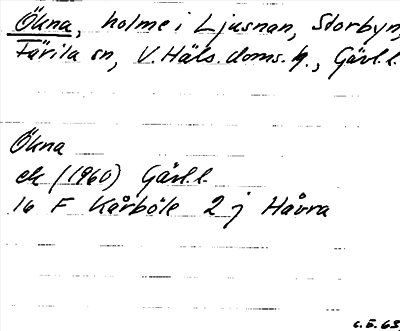 Ökna, holme i Ljusnan, Storbyn,
Färila sn, V. Häls. doms. h., Gävl.l.
Ökna
ek (1960) Gävl.l.
16 F Kårböle 2 j Håvra
C.E. 63